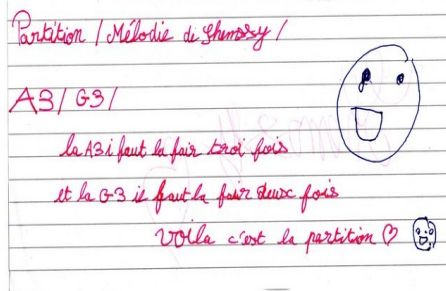 Partition / Mélodie de Shemssy /
A3/ G3/
la A3 i faut la fair troi fois
et la G3 il faut la fair deux fois
voila c'est la partition ♡